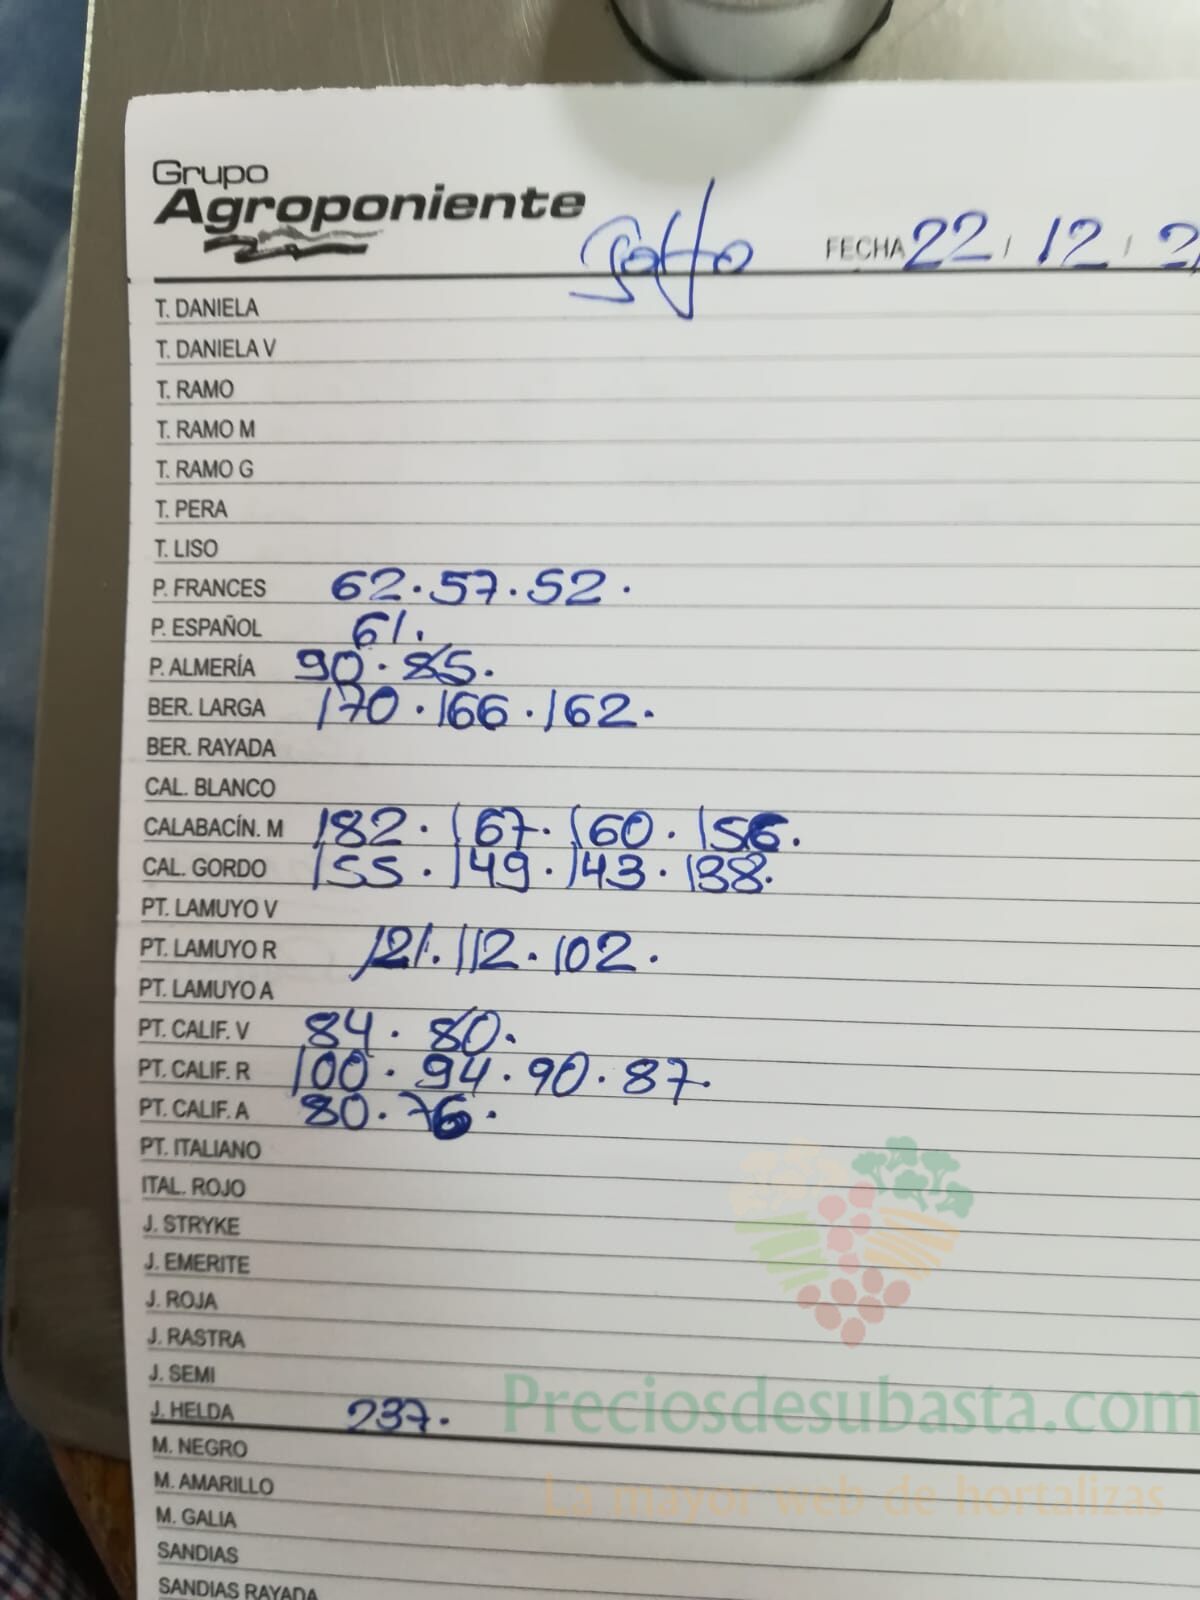 Grupo
Agroponiente
FECHA 22 / 12 / 2
T. DANIELA
T. DANIELA V
T. RAMO
T. RAMO M
T. RAMO G
T. PERA
T. LISO
P. FRANCES 62 · 57 · 52 ·
P. ESPAÑOL 61.
P. ALMERÍA 90 · 85.
BER. LARGA 170 · 166 · 162.
BER. RAYADA
CAL. BLANCO
CALABACÍN. M 182 · 167 · 160 · 156.
CAL. GORDO 155 · 149 · 143 · 138.
PT. LAMUYO V
PT. LAMUYO R 121. 112 · 102 .
PT. LAMUYO A
PT. CALIF. V 84 · 80.
PT. CALIF. R 100 · 94 · 90 · 87.
PT. CALIF. A 80 · 76 .
PT. ITALIANO
ITAL. ROJO
J. STRYKE
J. EMERITE
J. ROJA
J. RASTRA
J. SEMI
J. HELDA 237.
Preciosdesubasta.com
M. NEGRO
M. AMARILLO
La mayor web de hortalizas
M. GALIA
SANDIAS
SANDIAS RAYADA